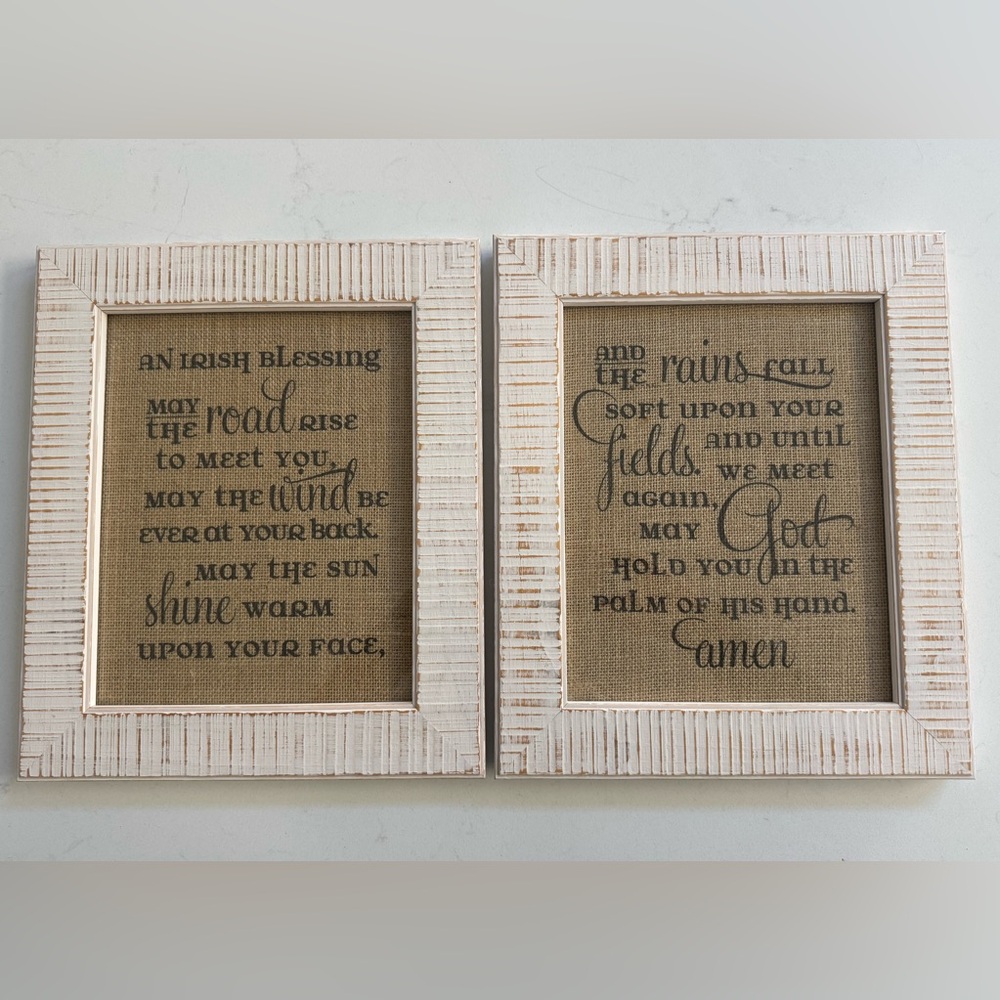 AN IRISH BLESSING
MAY THE road RISE
to MEET YOU,
MAY THE wind BE
EVER at YOUR back.
MAY THE SUN
shine WARM
UPON YOUR FACE,
AND THE rains FALL
SOFT UPON YOUR
fields. AND UNTIL
WE MEET
AGAIN,
MAY God
HOLD YOU in THE
PALM OF HIS Hand.
amen